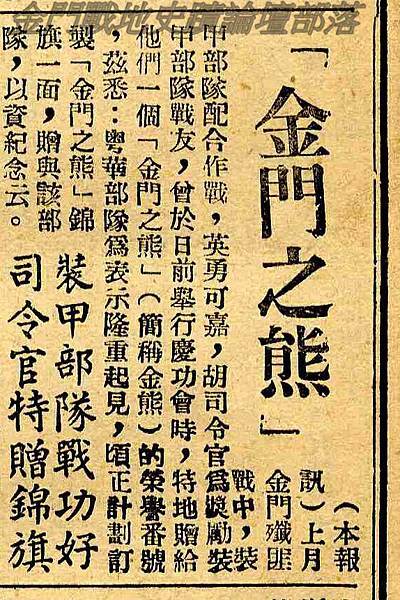 金門戰地史蹟論壇部落
「金門之熊」
裝甲部隊戰功好
司令官特贈錦旗
（本報
訊）上月
金門殲匪
戰中，裝
甲部隊配合作戰，英勇可嘉，胡司令官爲獎勵裝
甲部隊戰友，曾於日前舉行慶功會時，特地贈給
他們一個「金門之熊」（簡稱金熊）的榮譽番號
，茲悉：粵華部隊爲表示隆重起見，頃正計劃訂
製「金門之熊」錦
旗一面，贈與該部
隊，以資紀念云。